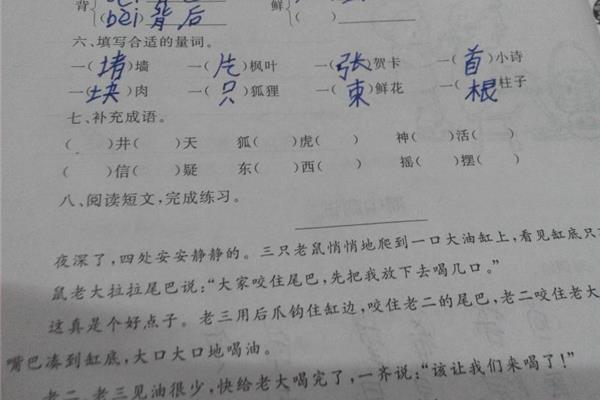 背
(bèi)背后
鲜
( )
六、填写合适的量词。
一(堵)墙 一(片)枫叶 一(张)贺卡 一(首)小诗
一(块)肉 一(只)狐狸 一(束)鲜花 一(根)柱子
七、补充成语。
( )井( )天 狐( )虎( ) 神( )活( )
( )信( )疑 东( )西( ) 摇( )摆( )
八、阅读短文,完成练习。
夜深了,四处安安静静的。三只老鼠悄悄地爬到一口大油缸上,看见缸底只
鼠老大拉拉尾巴说:“大家咬住尾巴,先把我放下去喝几口。”
这真是个好点子。老三用后爪钩住缸边,咬住老二的尾巴,老二咬住老大
嘴巴凑到缸底,大口大口地喝油。
老二、老三见油很少,快给老大喝完了,一齐说:“该让我们来喝了!”